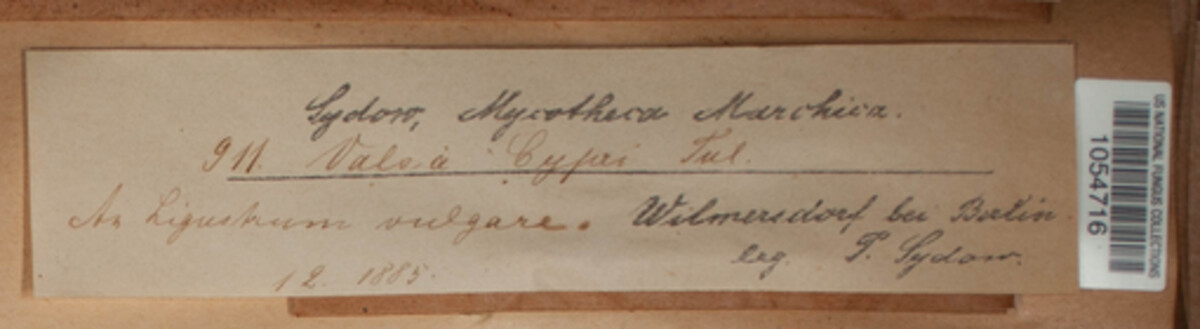 Sydow, Mycotheca Marchica.
911. Valsa Cypri Tul.
An Ligustrum vulgare. Wilmersdorf bei Berlin.
leg. P. Sydow.
12. 1885.
US NATIONAL FUNGUS COLLECTIONS
1054716